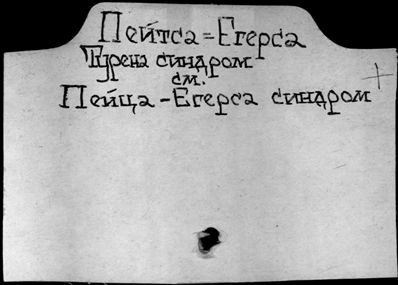 Пейтса=Егерса
Турена синдром
см.
Пейца-Егерса синдром